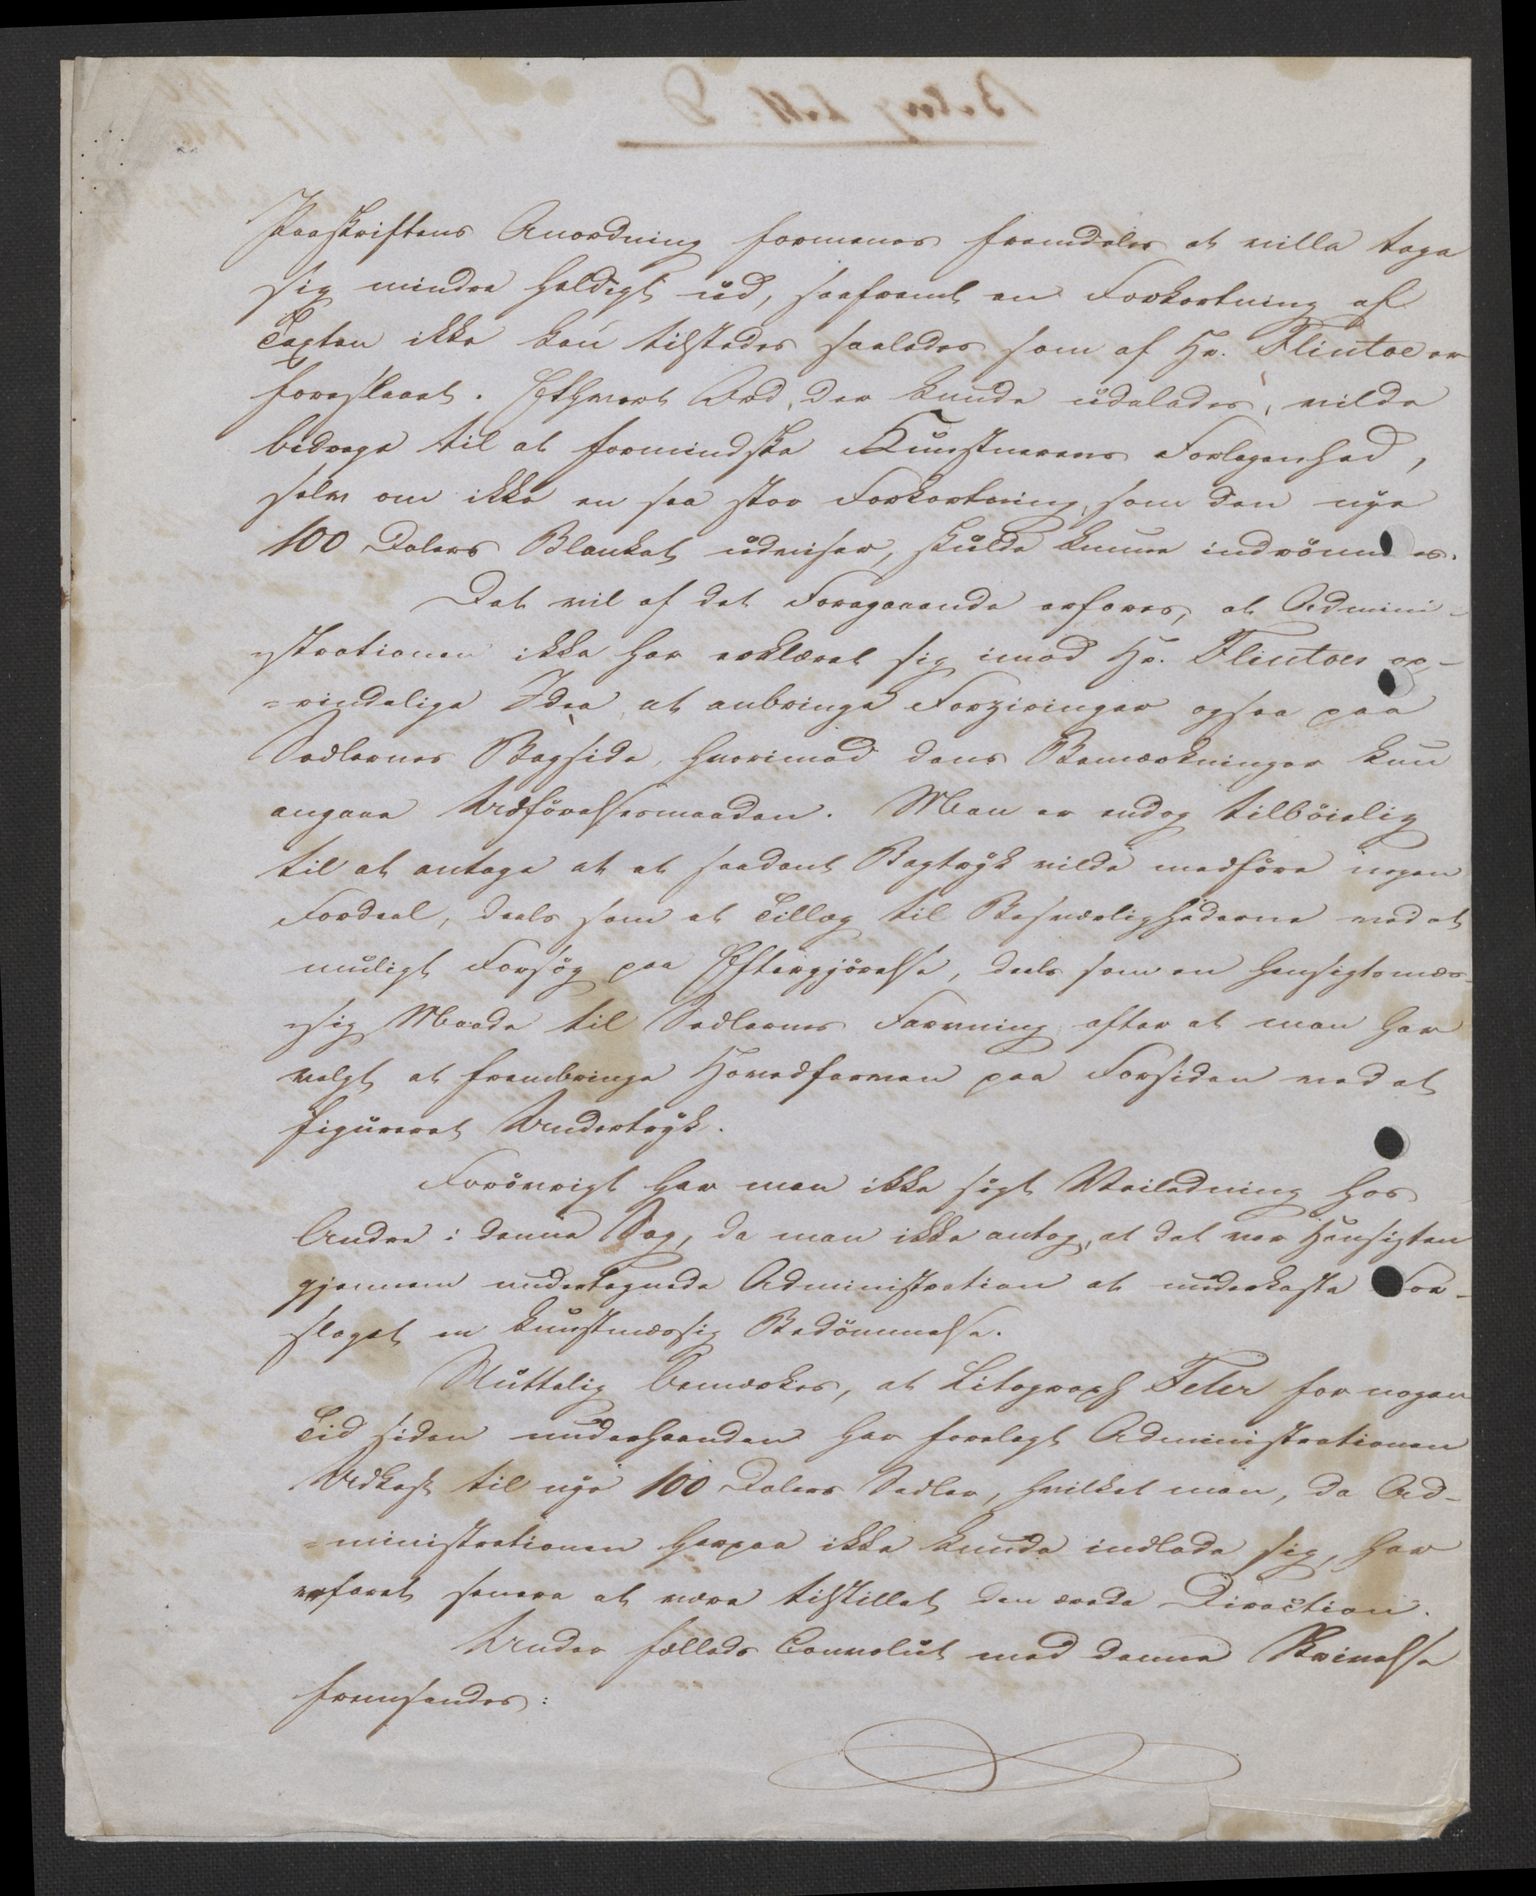 Paaskriftens Anordning formenes fremdeles at ville tage
sig mindre heldigt ud, saafremt en Forkortning af
Texten ikke kan tilstedes saaledes som af Hr. Flintoe er
foreslaaet. Ethvert Ord, der kunde udelades, vilde
bidrage til at formindske Kunstnerens Forlegenhed,
selv om ikke en saa stor Forkortning, som den nye
100 Dalers Blanket udviser, skulde kunne indrömmes.
Det vil af det Foregaaende erfares, at Admini-
strationen ikke har erklæret sig imod Hr. Flintoes op-
=rindelige Idee at anbringe Forziringer ogsaa paa
Sedlernes Bagside, hvorimod dens Bemærkninger kun
angaae Udförelsesmaaden. Man er endog tilböielig
til at antage at et saadant Bagtryk vilde medföre nogen
Fordeel, deels som et Tillæg til Besværlighederne ved et
muligt Forsög paa Eftergjörelse, deels som en hensigtsmæs-
sig Maade til Sedlernes Farvning efter at man har
valgt at frembringe Hovedfarven paa Forsiden ved et
figureret Undertryk.
Forövrigt har man ikke sögt Veiledning hos
Andre i denne Sag, da man ikke antog, at det var Hensigten
gjennem undertegnede Administration at underkaste For-
slaget en kunstmæssig Bedömmelse.
Sluttelig bemærkes, at Litograph Feler for nogen
Tid siden underhaanden har forelagt Administrationen
Udkast til nye 100 Dalers Sedler, hvilket man, da Ad-
=ministrationen herpaa ikke kunde indlade sig, har
erfaret senere at være tilstillet den ærede Direction.
Under fælleds Convolut med denne Skrivelse
fremsendes: